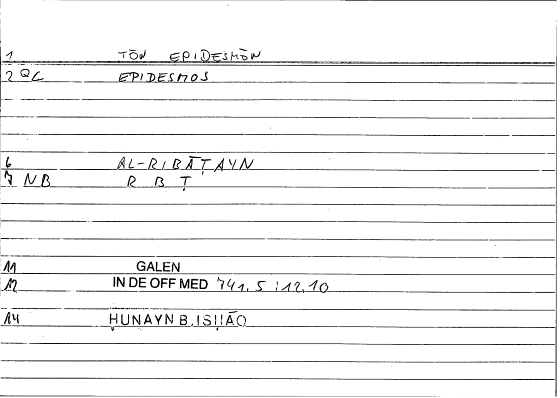 1 TŌN EPIDESMŌN
2 QL EPIDESMOS
6 AL-RIBĀṬAYN
7 NB R B Ṭ
11 GALEN
12 IN DE OFF MED 741.5 : 12.10
14 ḤUNAYN B. ISḤĀQ